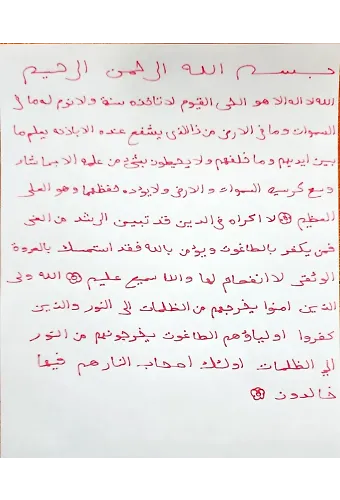 بسم الله الرحمن الرحيم
الله لا اله الا هو الحي القيوم لا تاخذه سنة ولا نوم له ما في
السموات وما في الارض من ذا الذي يشفع عنده الا باذنه يعلم ما
بين ايديهم وما خلفهم ولا يحيطون بشيء من علمه الا بما شاء
وسع كرسيه السموات والارض ولا يؤده حفظهما وهو العلي
العظيم لا اكراه في الدين قد تبين الرشد من الغي
فمن يكفر بالطاغوت ويؤمن بالله فقد استمسك بالعروة
الوثقى لا انفصام لها والله سميع عليم الله ولي
الذين امنوا يخرجهم من الظلمات الى النور والذين
كفروا اولياؤهم الطاغوت يخرجونهم من النور
الى الظلمات اولئك اصحاب النار هم فيها
خالدون